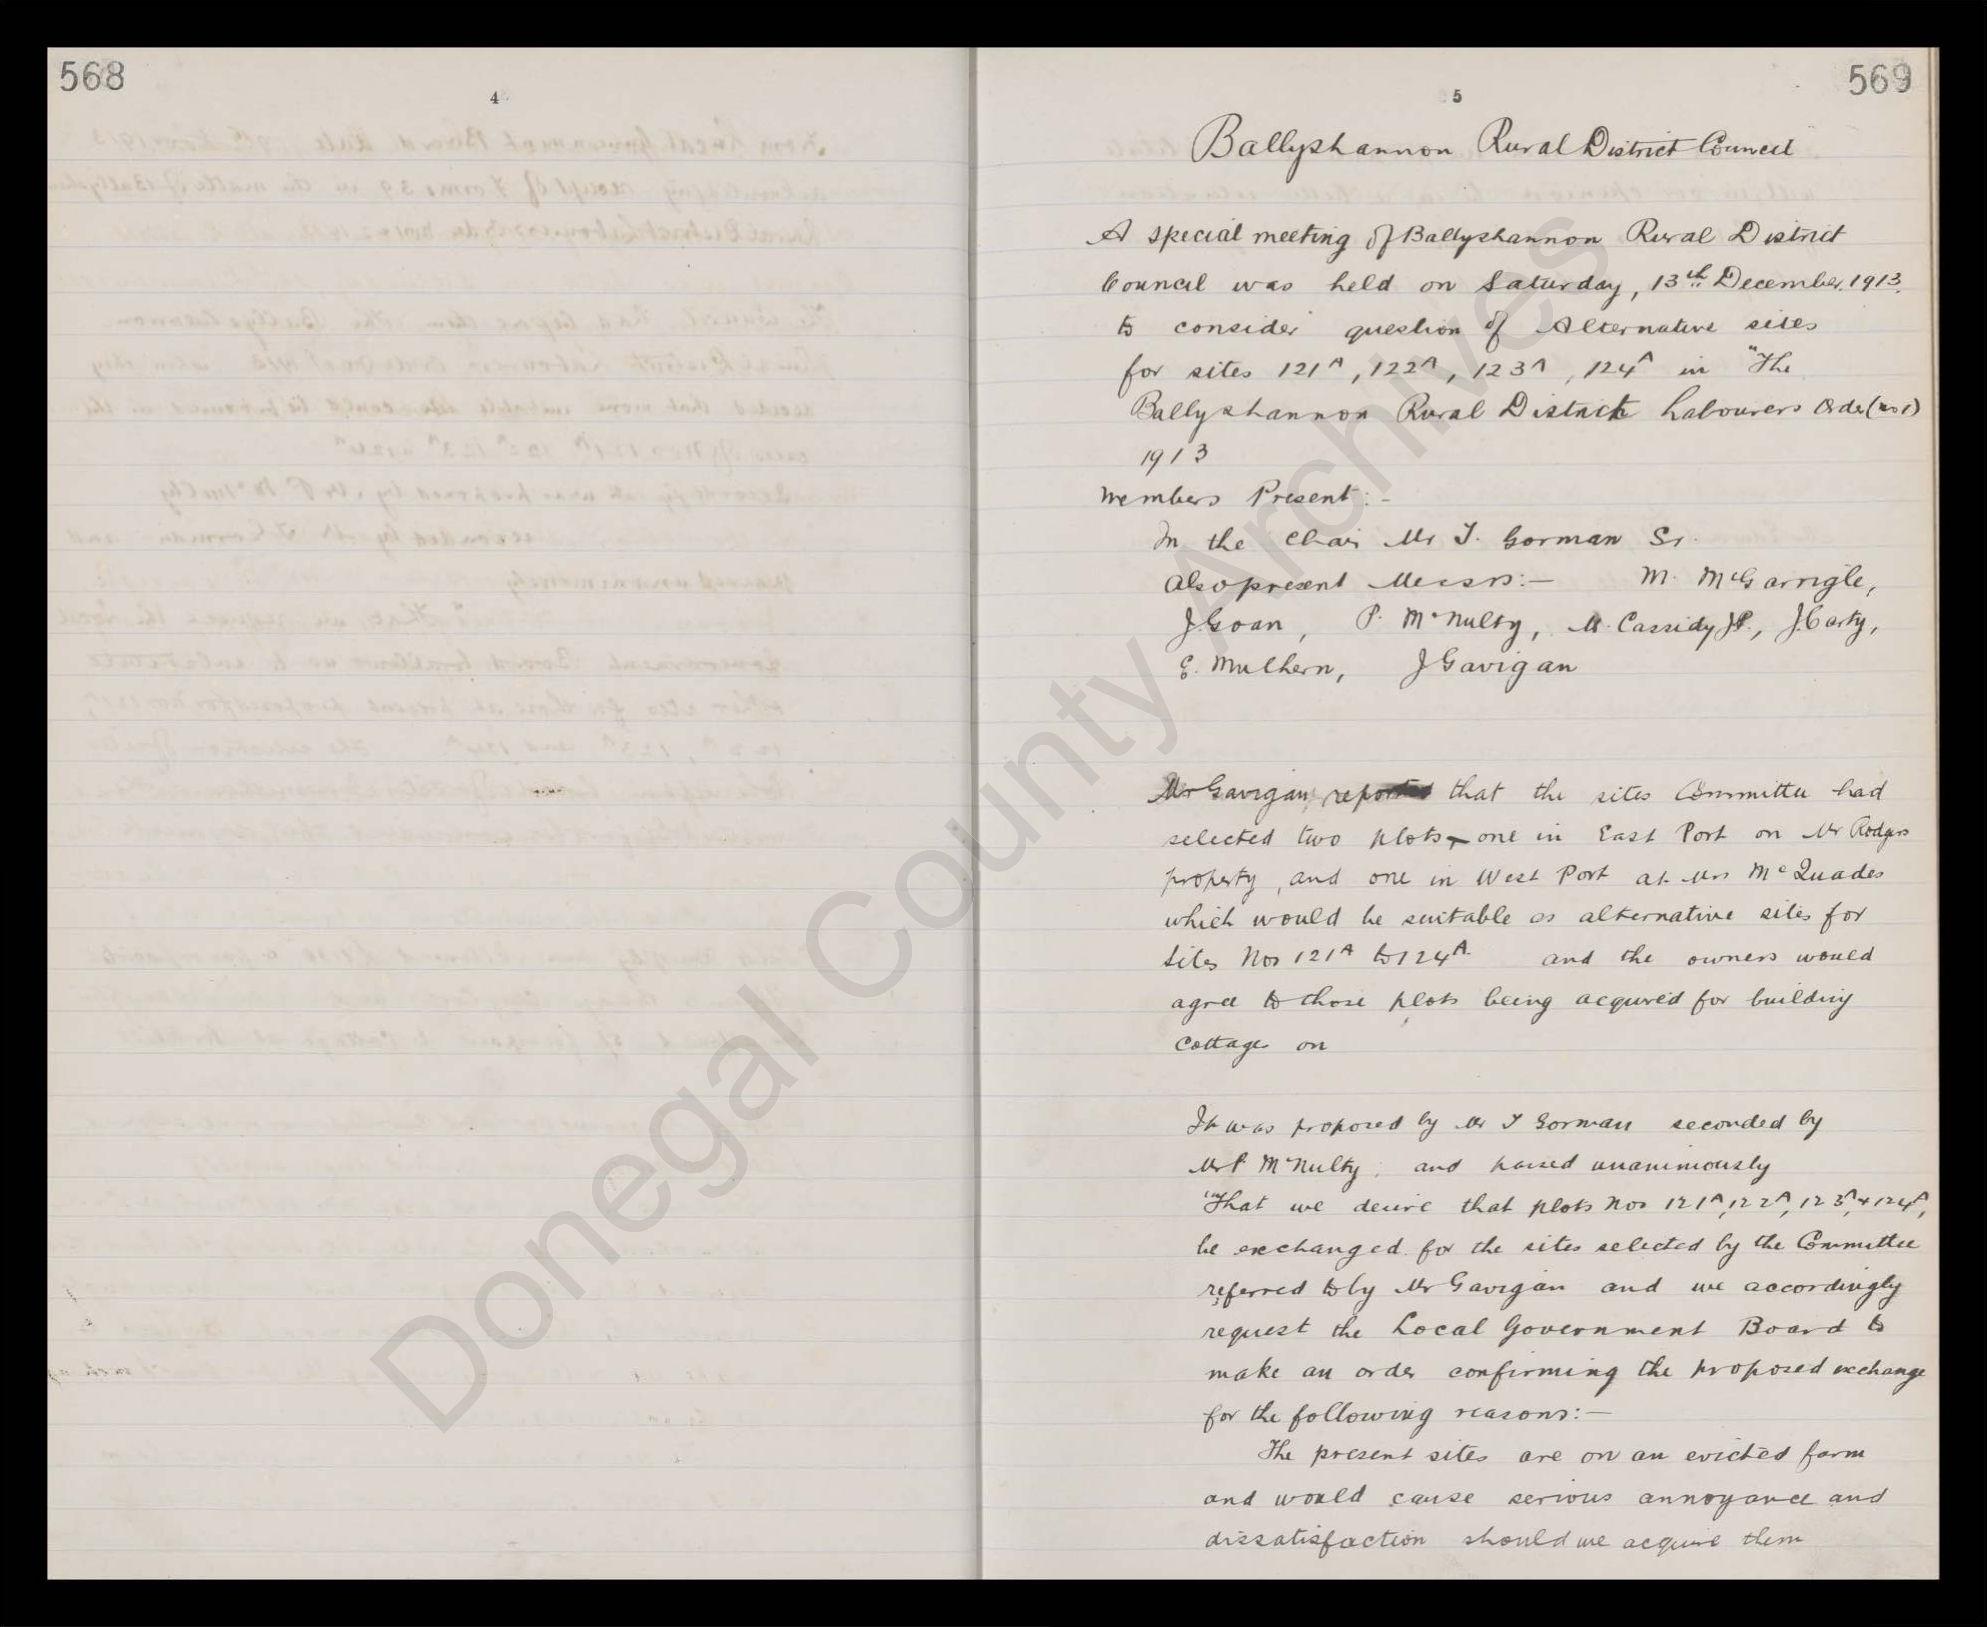 568
4
569
5
Ballyshannon Rural District Council
A special meeting of Ballyshannon Rural District
Council was held on Saturday, 13th December. 1913.
to consider question of Alternative sites
for sites 121A, 122A, 123A, 124A in "The
Ballyshannon Rural District Labourers Order (No 1)
1913
Members Present:-
In the Chair Mr T. Gorman Sr.
Also present Messrs:- M. McGarrigle,
J Goan, P. McNulty, M. Cassidy JP., J. Carty,
E. Mulhern, J Gavigan
Mr Gavigan, reported that the sites Committee had
selected two plots - one in East Port on Mr Rodgers
property, and one in West Port at Mrs McQuades
which would be suitable as alternative sites for
Sites Nos 121A to 124A. and the owners would
agree to those plots being acquired for building
Cottages on
It was proposed by Mr T Gorman seconded by
Mr P McNulty, and passed unanimously
"That we desire that plots Nos 121A, 122A, 123A, + 124A,
be exchanged for the sites selected by the Committee
referred to by Mr Gavigan and we accordingly
request the Local Government Board to
make an order confirming the proposed exchange
for the following reasons:-
The present sites are on an evicted farm
and would cause serious annoyance and
dissatisfaction should we acquire them
Donegal County Archives